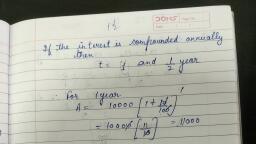 1½
If the interest is compounded annually
then
t = 1 and 1/2 year
∴ For 1 year
A = 10000 [1 + 10/100]¹
= 10000 [11/10] = 11000